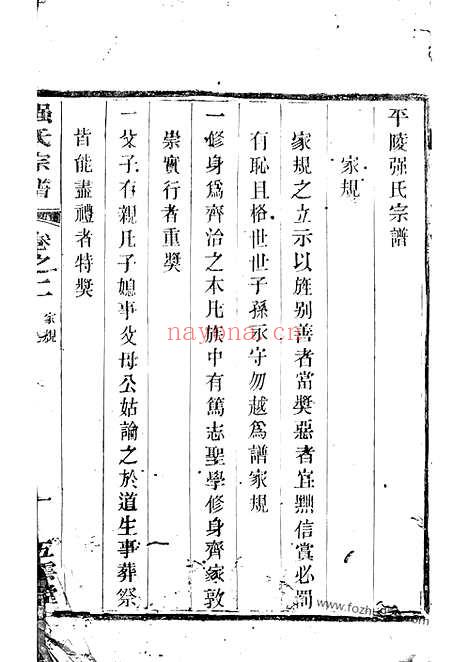 平陵强氏宗譜
家規
家規之立示以旌别善者當奬惡者宜黜信賞必罰
有恥且格世世子孫永守勿越爲譜家規
一修身爲齊治之本凡族中有篤志聖學修身齊家敦
崇實行者重奬
一父子有親凡子媳事父母公姑論之於道生事葬祭
皆能盡禮者特奬
强氏宗譜
卷之二
家規
一
五雲堂
nayona.cn
www.fozhu